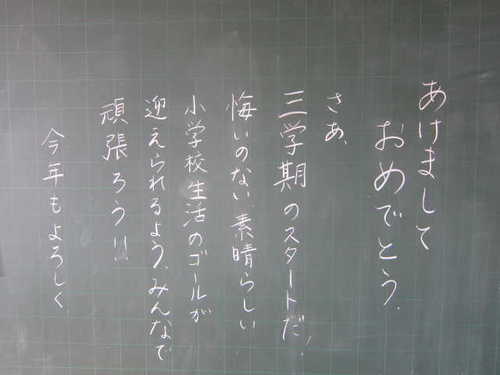 あけまして
おめでとう.
さあ、
三学期のスタートだ!
悔いのない素晴らしい
小学校生活のゴールが
迎えられるよう、みんなで
頑張ろう!!
今年もよろしく